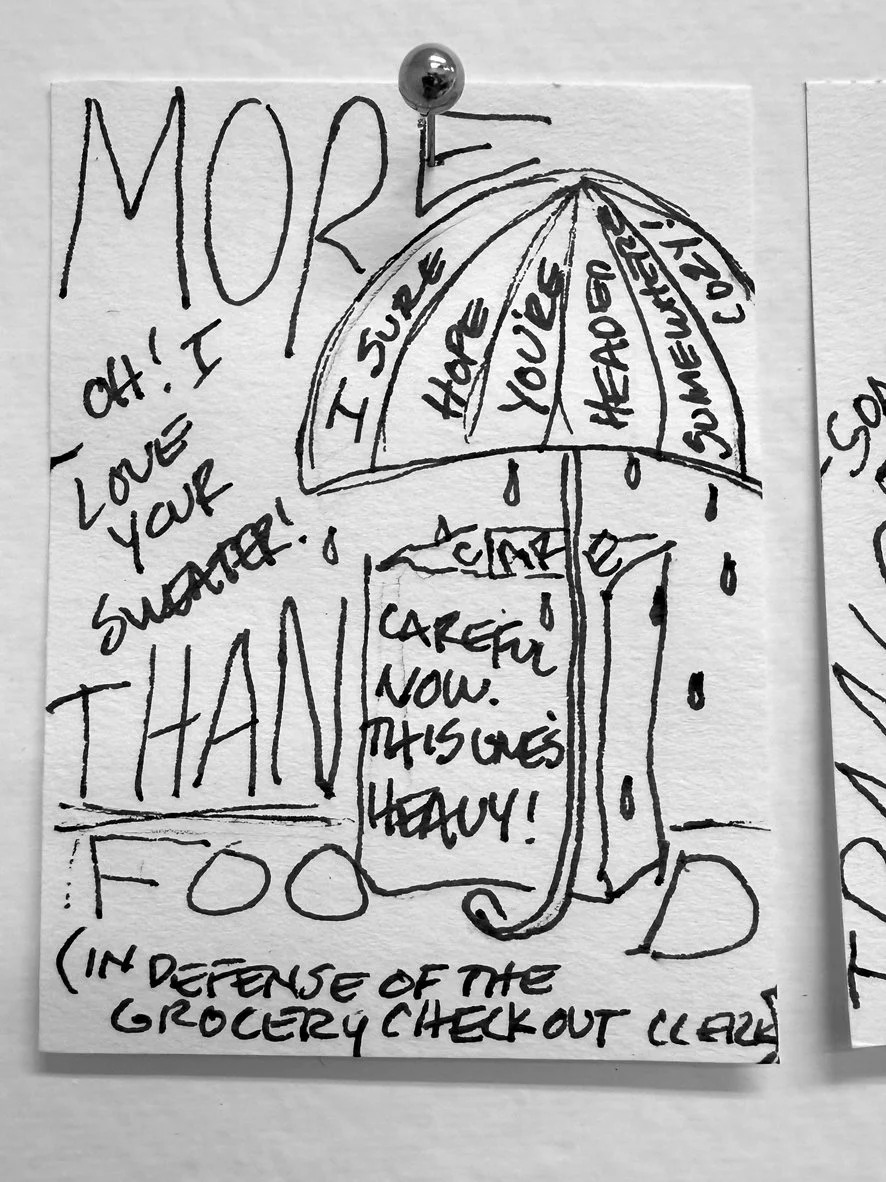 MORE
I SURE
HOPE
YOU'RE
HEADED
SOMEWHERE
COZY!
OH! I
LOVE
YOUR
SWEATER!
THAN
CAREFUL
NOW.
THIS ONE'S
HEAVY!
FOOD
(IN DEFENSE OF THE
GROCERY CHECKOUT CLERK